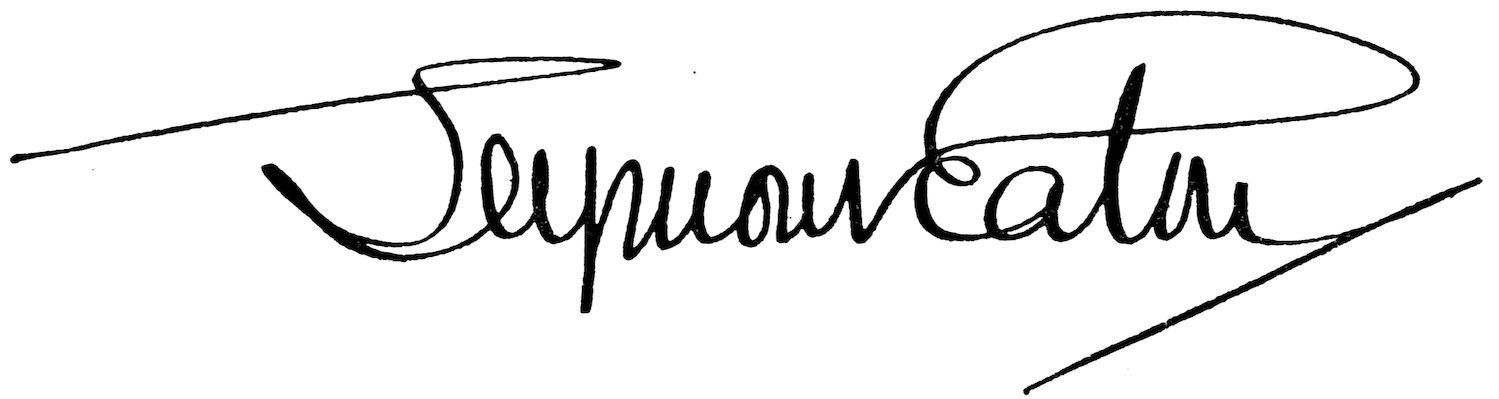 Seymour Eaton